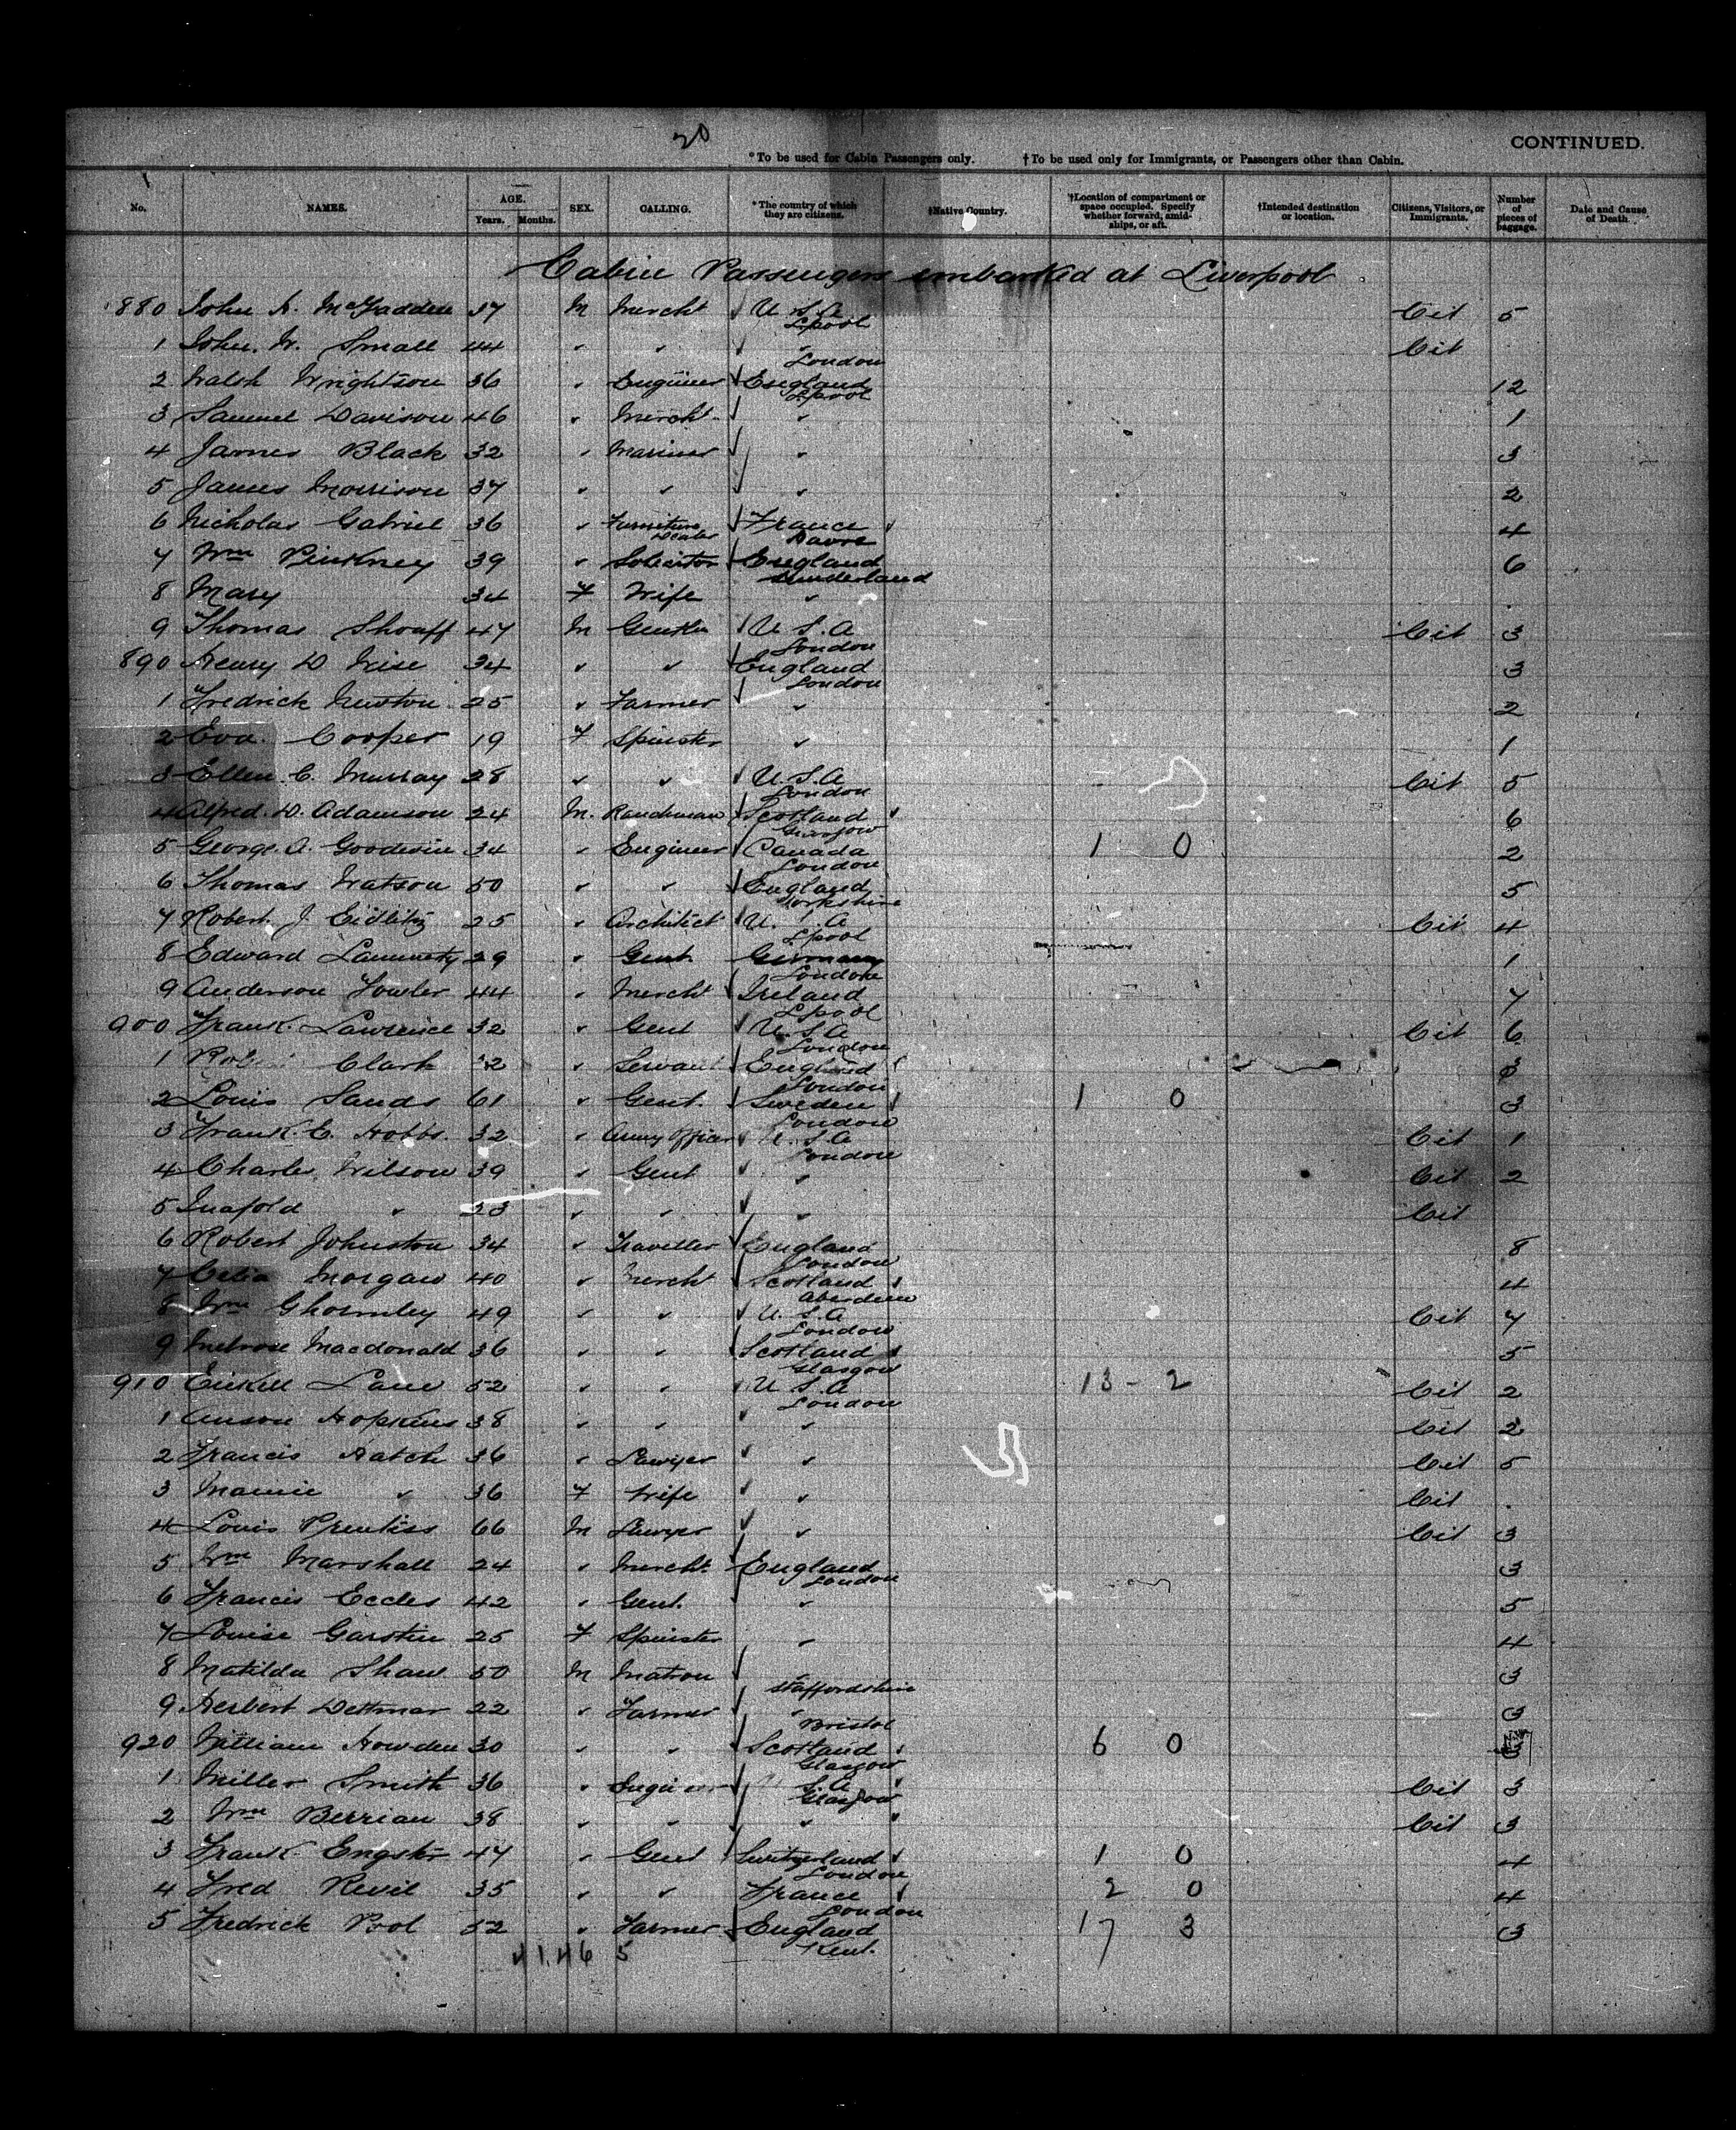 20
CONTINUED.
*To be used for Cabin Passengers only. †To be used only for Immigrants, or Passengers other than Cabin.
No. NAMES. AGE. Years. Months. SEX. CALLING. *The country of which they are citizens. †Native Country. †Location of compartment or space occupied. Specify whether forward, amidships, or aft. †Intended destination or location. Citizens, Visitors, or Immigrants. Number of pieces of baggage. Date and Cause of Death
Cabin Passengers embarked at Liverpool
880 John H. McFadden 37 M Mercht U S A Cit 5
Lpool
1 John. W. Small 44 " " " Cit
London
2 Walsh Wrightson 36 " Engineer England 12
Lpool
3 Samuel Davison 46 " Mercht " 1
4 James Black 32 " Mariner " 3
5 James Morrison 37 " " " 2
6 Nicholas Gabriel 36 " Furniture Dealer France 4
Havre
7 Wm Pinkney 39 " Solicitor England 6
Sunderland
8 Mary 34 F Wife "
9 Thomas Shoaff 47 M Gentln U S. A Cit 3
London
890 Henry D Wise 34 " " England 3
London
1 Fredrick Newton 25 " Farmer " 2
2 Eva. Cooper 19 F Spinster " 1
3 Ellen. C. Murray 28 " " U. S. A Cit 5
London
4 Alfred. D. Adamson 24 M. Ranchman Scotland 6
Glasgow
5 George. A. Goodwin 34 " Engineer Canada 1 0 2
London
6 Thomas Watson 50 " " England 5
Yorkshire
7 Robert J. Eidlitz 25 " Architect U. S. A Cit 4
Lpool
8 Edward 29 " Gent. Germany 1
London
9 Anderson Fowler 44 " Mercht Ireland 7
Lpool
900 Frank. Lawrence 32 " Gent U. S. A Cit 6
London
1 Clark 32 " Servant England 3
London
2 Louis Sands 61 " Gent. Sweden 1 0 3
London
3 Frank. C. Hobbs. 32 " Army Officer U. S. A Cit 1
London
4 Charles Wilson 39 " Gent " Cit 2
5 " 23 " " " Cit
6 Robert Johnston 34 " Traveller England 8
London
7 Celia Morgan 40 " Mercht Scotland 4
Aberdeen
8 Wm Ghormley 49 " " U. S. A Cit 7
London
9 Melrose Macdonald 36 " " Scotland 5
Glasgow
910 Lane 52 " " U S. A 13 - 2 Cit 2
London
1 Anson Hopkins 38 " " " Cit 2
2 Francis Hatch 36 " Lawyer " Cit 5
3 Mamie " 36 F Wife " Cit
4 Louis Prentiss 66 M Lawyer " Cit 3
5 Wm Marshall 24 " Mercht. England 3
London
6 Francis Eccles 42 " Gent. " 5
7 Louise Garstin 25 F Spinster " 4
8 Matilda Shaw 50 M Matron " 3
Staffordshire
9 Herbert Dettmar 22 " Farmer " 3
Bristol
920 William Howden 30 " " Scotland 6 0 3
Glasgow
1 Miller Smith 36 " Engineer S. A Cit 3
Glasgow
2 Wm Berrian 38 " " " Cit 3
3 Frank 47 " Gent Switzerland 1 0 4
London
4 Fred Revil 35 " " France 2 0 4
London
5 Fredrick Pool 52 " Farmer England 17 3 3
Kent.
41.46 5